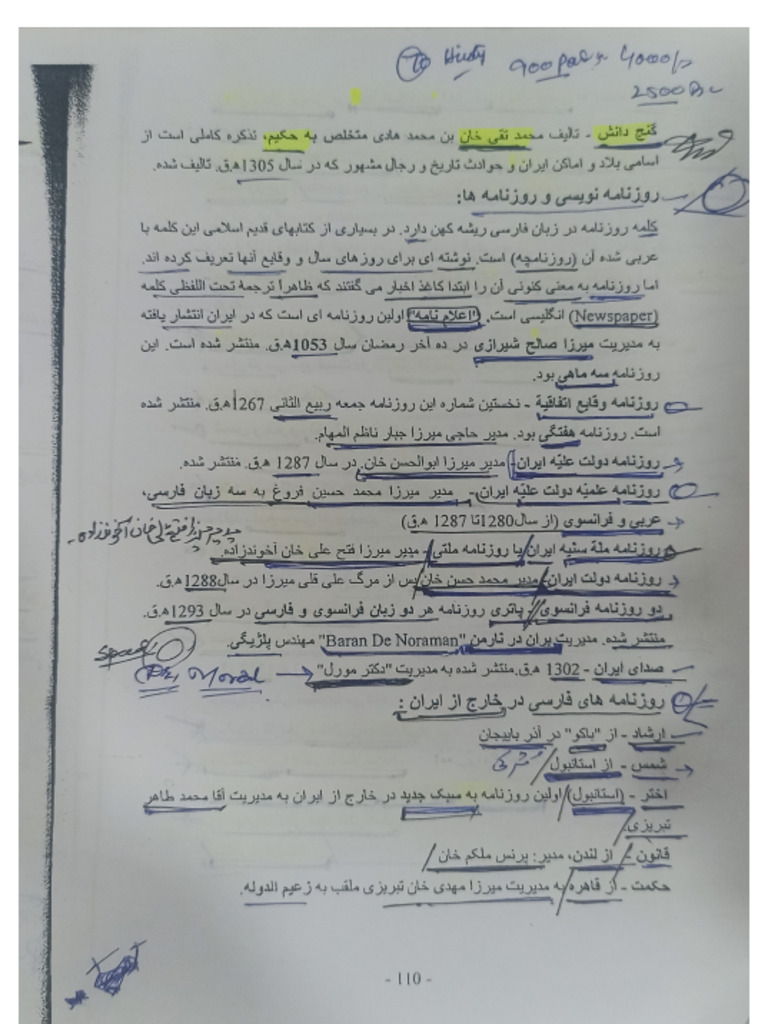 To Hindi 900 pages 4000/=
2500 Rs
گنج دانش - تالیف محمد تقی خان بن محمد هادی متخلص به حکیم، تذکره کاملی است از
اسامی بلاد و اماکن ایران و حوادث تاریخ و رجال مشهور که در سال 1305ه.ق. تالیف شده.
روزنامه نویسی و روزنامه ها:
کلمه روزنامه در زبان فارسی ریشه کهن دارد. در بسیاری از کتابهای قدیم اسلامی این کلمه با
عربی شده آن (روزنامچه) است. نوشته ای برای روزهای سال و وقایع آنها تعریف کرده اند.
اما روزنامه به معنی کنونی آن را ابتدا کاغذ اخبار می گفتند که ظاهراً ترجمۀ تحت اللفظی کلمه
(Newspaper) انگلیسی است. "اعلام نامه" اولین روزنامه ای است که در ایران انتشار یافته
به مدیریت میرزا صالح شیرازی در ده آخر رمضان سال 1053ه.ق. منتشر شده است. این
روزنامه سه ماهی بود.
روزنامه وقایع اتفاقیة - نخستین شماره این روزنامه جمعه ربیع الثانی 1267ه.ق. منتشر شده
است. روزنامه هفتگی بود. مدیر حاجی میرزا جبار ناظم المهام.
روزنامه دولت علیّه ایران- مدیر میرزا ابوالحسن خان. در سال 1287 ه.ق. منتشر شده.
روزنامه علمیّه دولت علیّه ایران- مدیر میرزا محمد حسین فروغ به سه زبان فارسی،
عربی و فرانسوی (از سال1280تا 1287 ه.ق)
روزنامه ملة سنیه ایران یا روزنامه ملتی- مدیر میرزا فتح علی خان آخوندزاده.
روزنامه دولت ایران- مدیر محمد حسن خان پس از مرگ علی قلی میرزا در سال1288ه.ق.
دو روزنامه فرانسوی - پاتری روزنامه هر دو زبان فرانسوی و فارسی در سال 1293ه.ق.
منتشر شده. مدیریت بران در نارمن "Baran De Noraman" مهندس بلژیگی.
صدای ایران - 1302 ه.ق.منتشر شده به مدیریت "دکتر مورل"
Dr. Moral
روزنامه های فارسی در خارج از ایران :
ارشاد - از "باکو" در آذر بایجان
شمس - از استانبول
اختر - (استانبول) اولین روزنامه به سبک جدید در خارج از ایران به مدیریت آقا محمد طاهر
تبریزی.
قانون - از لندن، مدیر: پرنس ملکم خان
حکمت - از قاهره به مدیریت میرزا مهدی خان تبریزی ملقب به زعیم الدوله.
- 110 -